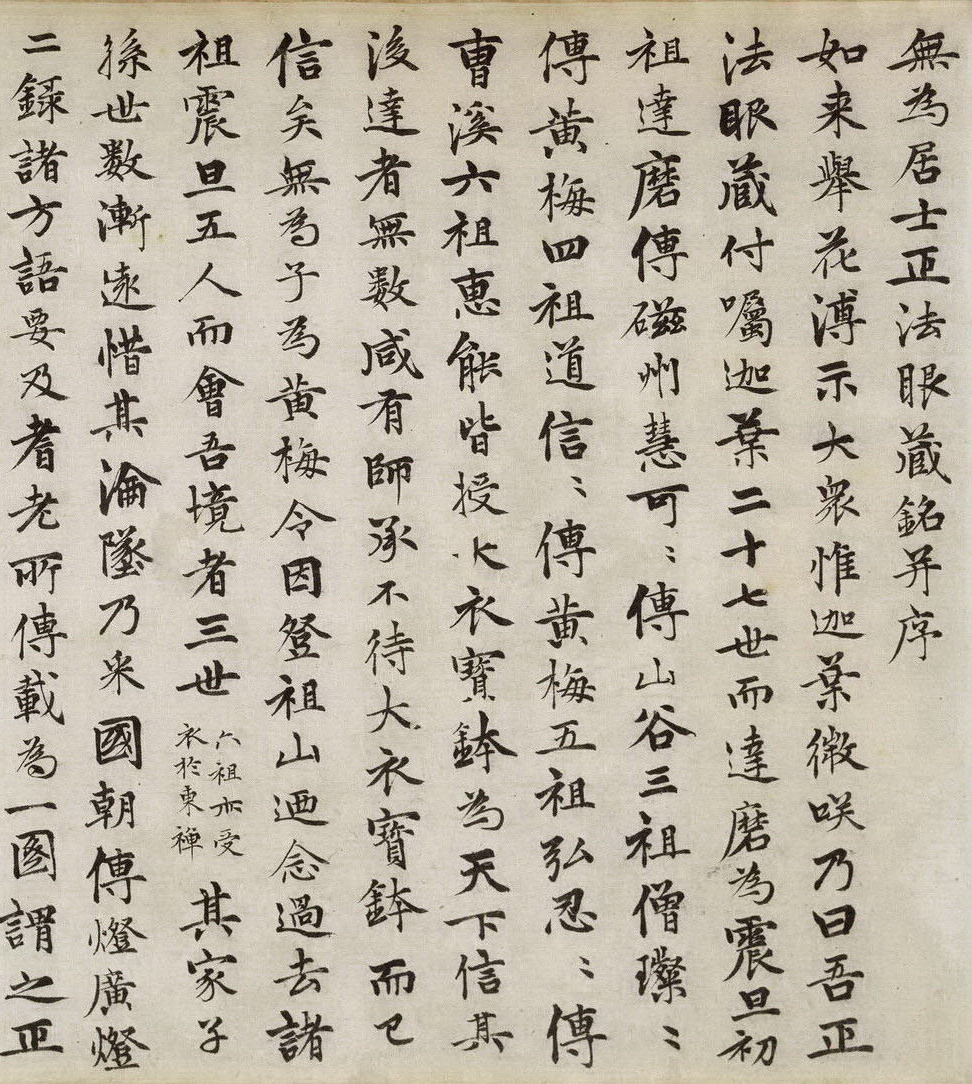 無為居士正法眼蔵銘并序
如来舉花溥示大衆惟迦葉微咲乃曰吾正
法眼蔵付囑迦葉二十七世而達磨為震旦初
祖達磨傳磁州慧可〻傳山谷三祖僧璨〻
傳黄梅四祖道信〻傳黄梅五祖弘忍〻傳
曹溪六祖惠能皆授以衣寶鉢為天下信其
後達者無數咸有師承不待大衣寳鉢而已
信矣無為子為黄梅令因登祖山迺念過去諸
祖震旦五人而會吾境者三世六祖亦受衣於東禅其家子
孫世数漸遠惜其淪墜乃采國朝傳燈廣燈
二録諸方語要及耆老所傳載為一圖謂之正